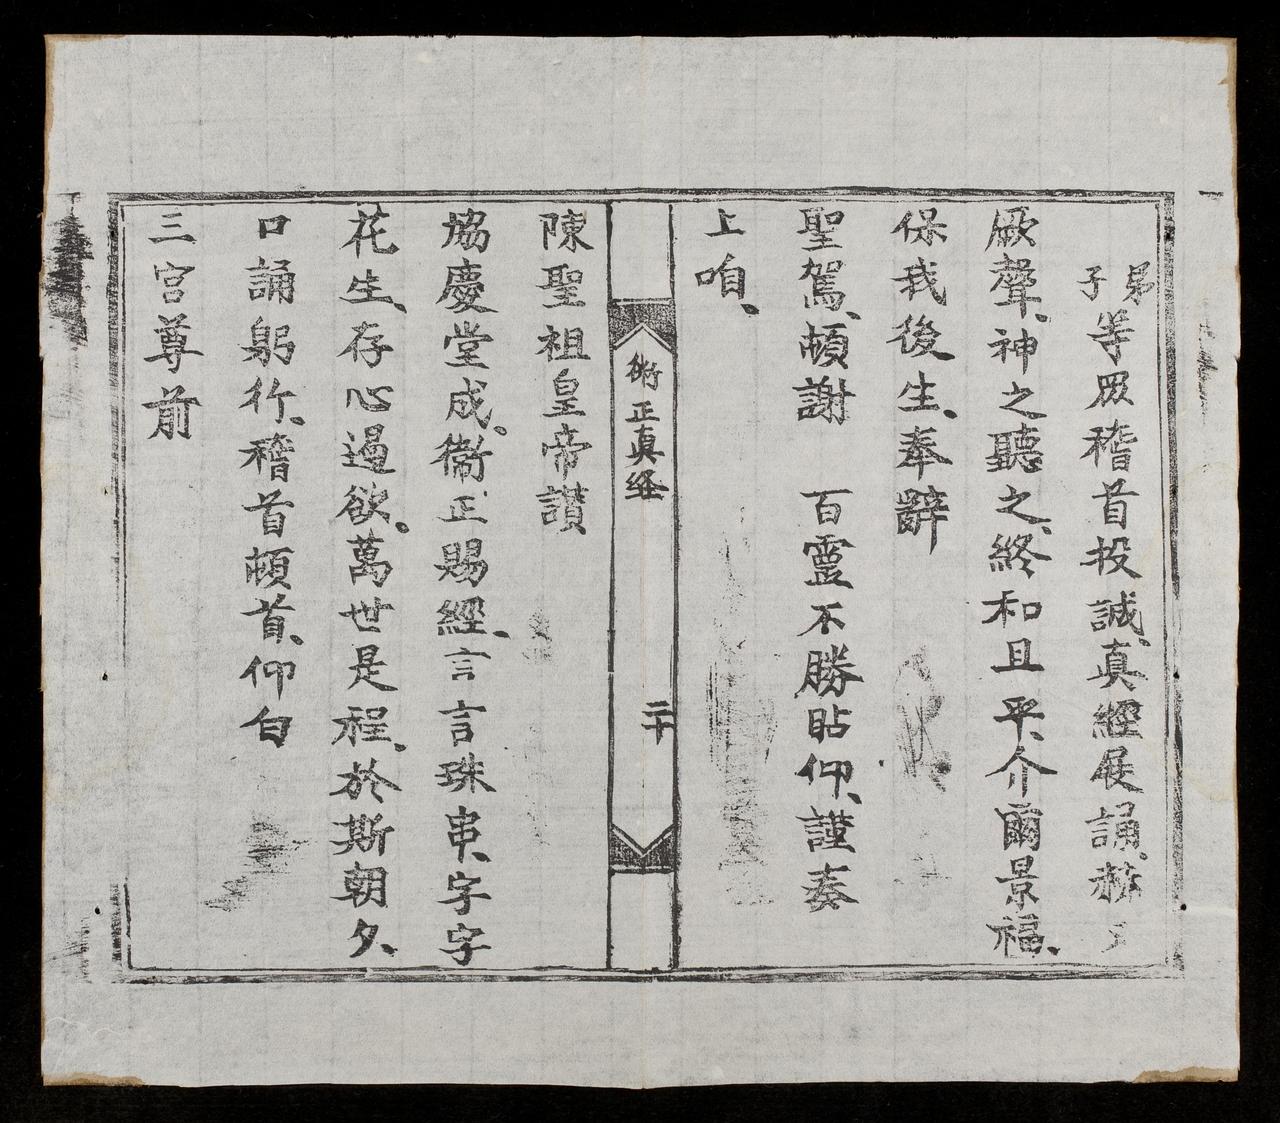 弟子等眾稽首投誠、真經展誦、赫
厥聲、神之聽之、終和且平、介爾景福、
保我後生、奉辭
聖駕、頓謝 百靈不勝貼仰、謹奏
上咱、
術正真經 二十
陳聖祖皇帝讃
協慶堂成、衞正賜經、言言珠串、字字
花生、存心遏欲、萬世是程、於斯朝夕、
口誦躬行、稽首頓首、仰白
三宮尊前